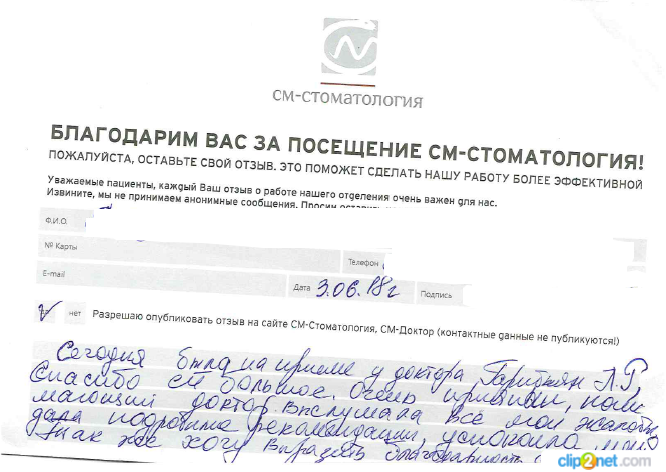 СМ-СТОМАТОЛОГИЯ
БЛАГОДАРИМ ВАС ЗА ПОСЕЩЕНИЕ СМ-СТОМАТОЛОГИЯ!
ПОЖАЛУЙСТА, ОСТАВЬТЕ СВОЙ ОТЗЫВ. ЭТО ПОМОЖЕТ СДЕЛАТЬ НАШУ РАБОТУ БОЛЕЕ ЭФФЕКТИВНОЙ
Уважаемые пациенты, каждый Ваш отзыв о работе нашего отделения очень важен для нас.
Извините, мы не принимаем анонимные сообщения. Просим
Ф.И.О.
№ Карты Телефон
E-mail Дата 3.06.18г Подпись
нет Разрешаю опубликовать отзыв на сайте СМ-Стоматология, СМ-Доктор (контактные данные не публикуются!)
Сегодня была на приеме у доктора Л.Р.
Спасибо ей большое. Очень приятный, пони
мающий доктор. Выслушала все мои жалобы,
дала подробные рекомендации, успокоила меня
Так же хочу выразить благодарность
clip2net.com